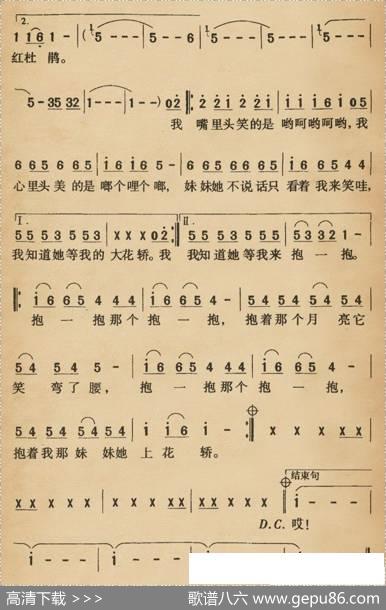 2.
1 1 6 1 - | ( i 5 - - - | 5 - - 5 | i 5 - - - | 5 - - 5 |
红杜 鹃。
5 - 35 32 | 1 - - - | 1 - - ) 02 |: 2 2 1 2 2 1 | 1 1 1 6 1 05 |
我 嘴里头笑的是 哟呵哟呵哟,我
6 6 5 6 6 5 | 1 6 1 6 5 · | 6 6 5 6 6 5 | 1 6 5 4 4 |
心里头美的是 啷个哩个啷, 妹妹她不说话只 看着我来笑哇,
I. II.
5 5 5 3 5 5 3 | X X X 02 :| 5 5 5 3 5 5 3 | 5 3 3 2 1 - |
我知道她等我的大花轿。我 我知道她等我来 抱一抱。
|: 1 6 6 5 4 4 4 | 1 6 6 5 4 - | 5 4 5 4 5 4 5 4 |
抱 一 抱那个 抱 一 抱, 抱着那个月 亮它
5 4 5 4 5 - | 1 6 6 5 4 4 4 | 1 6 6 5 4 - |
笑 弯了腰, 抱 一 抱那个 抱 一 抱,
5 4 5 4 5 4 5 4 | 1 1 6 1 - :| X X X X | X X X X |
抱着我那妹 妹她 上花 轿。
X X X X X X | X X X X | X X X X X X | X X X X | 1 - - - |
结束句
D.C. 哎!
1 - - - | 1 - - - | 1 - - -
高清下载 >>> 歌谱八六 www.gepu86.com